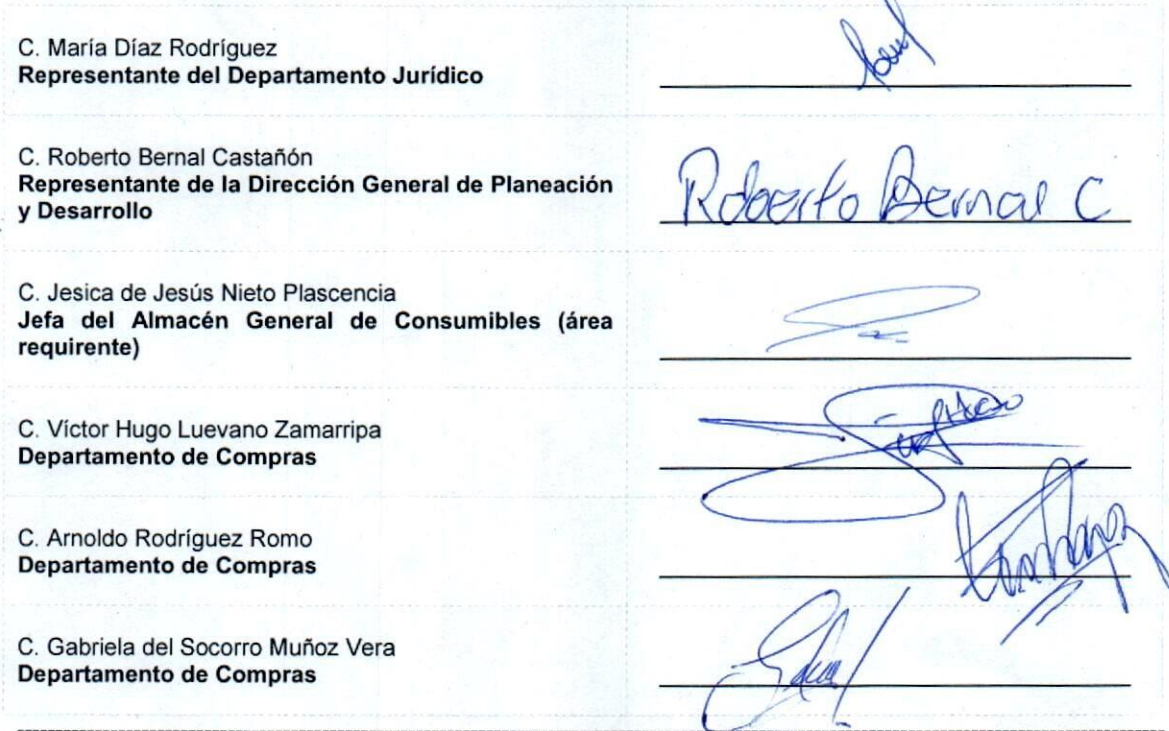 C. María Díaz Rodríguez
Representante del Departamento Jurídico
C. Roberto Bernal Castañón
Representante de la Dirección General de Planeación
y Desarrollo
Roberto Bernal C
C. Jesica de Jesús Nieto Plascencia
Jefa del Almacén General de Consumibles (área
requirente)
C. Víctor Hugo Luevano Zamarripa
Departamento de Compras
C. Arnoldo Rodríguez Romo
Departamento de Compras
C. Gabriela del Socorro Muñoz Vera
Departamento de Compras